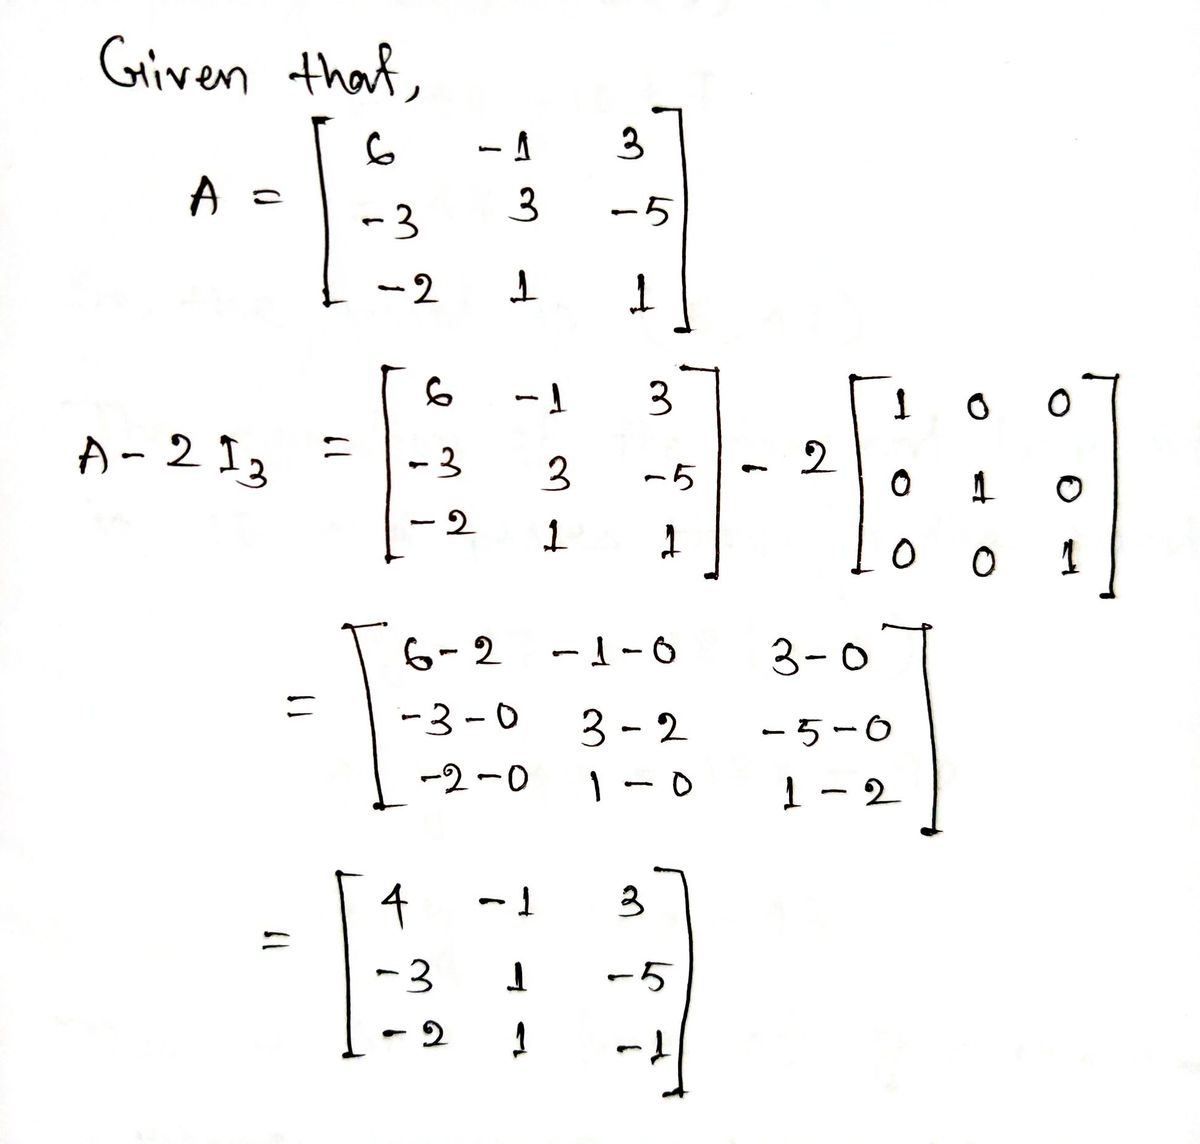 Given that,
A = [ 6 -1 3
-3 3 -5
-2 1 1 ]
A - 2 I₃ = [ 6 -1 3
-3 3 -5
-2 1 1 ] - 2 [ 1 0 0
0 1 0
0 0 1 ]
= [ 6-2 -1-0 3-0
-3-0 3-2 -5-0
-2-0 1-0 1-2 ]
= [ 4 -1 3
-3 1 -5
-2 1 -1 ]